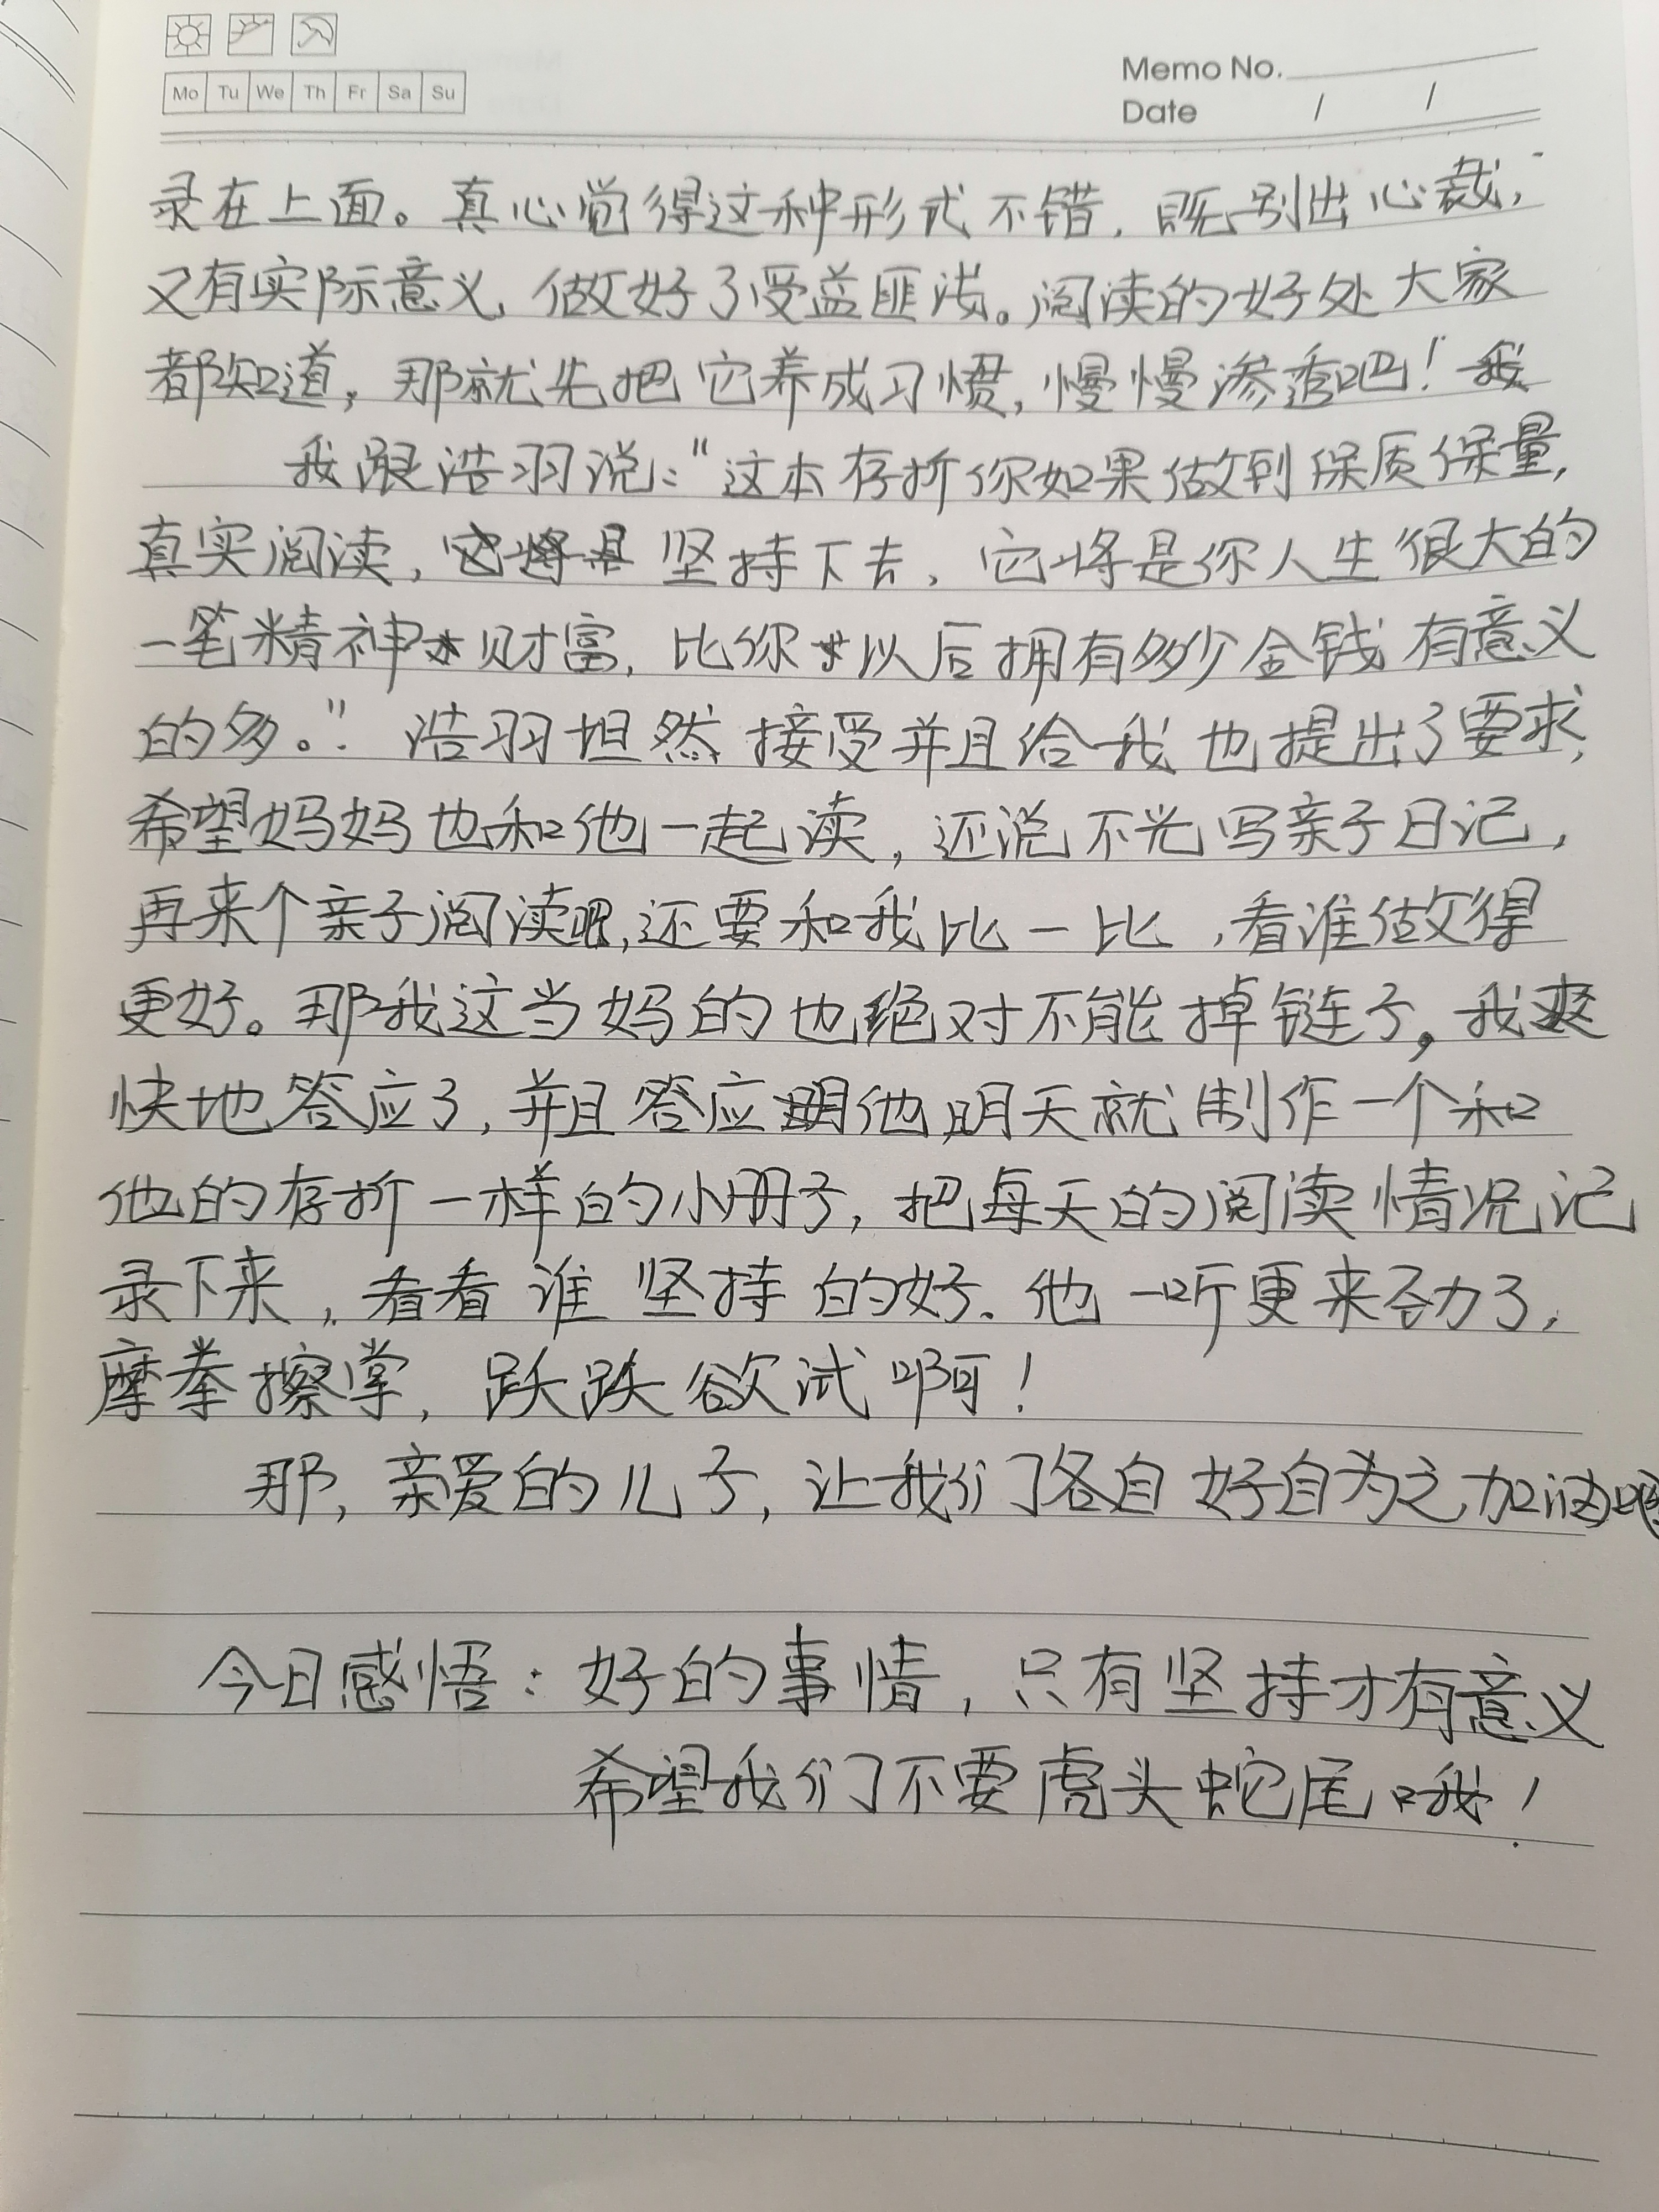 Mo Tu We Th Fr Sa Su
Memo No.
Date / /
录在上面。真心觉得这种形式不错，既别出心裁，
又有实际意义，做好了受益匪浅。阅读的好处大家
都知道，那就先把它养成习惯，慢慢渗透吧！
我跟浩羽说："这本存折你如果做到保质保量，
真实阅读，坚持下去，它将是你人生很大的
一笔精神财富，比你以后拥有多少金钱有意义
的多。"浩羽坦然接受并且给我也提出了要求，
希望妈妈也和他一起读，还说不光写亲子日记，
再来个亲子阅读吧，还要和我比一比，看谁做得
更好。那我这当妈的也绝对不能掉链子，我爽
快地答应了，并且答应他明天就制作一个和
他的存折一样的小册子，把每天的阅读情况记
录下来，看看谁坚持的好。他一听更来劲了，
摩拳擦掌，跃跃欲试啊！
那，亲爱的儿子，让我们各自好自为之，加油吧
今日感悟：好的事情，只有坚持才有意义
希望我们不要虎头蛇尾哦！